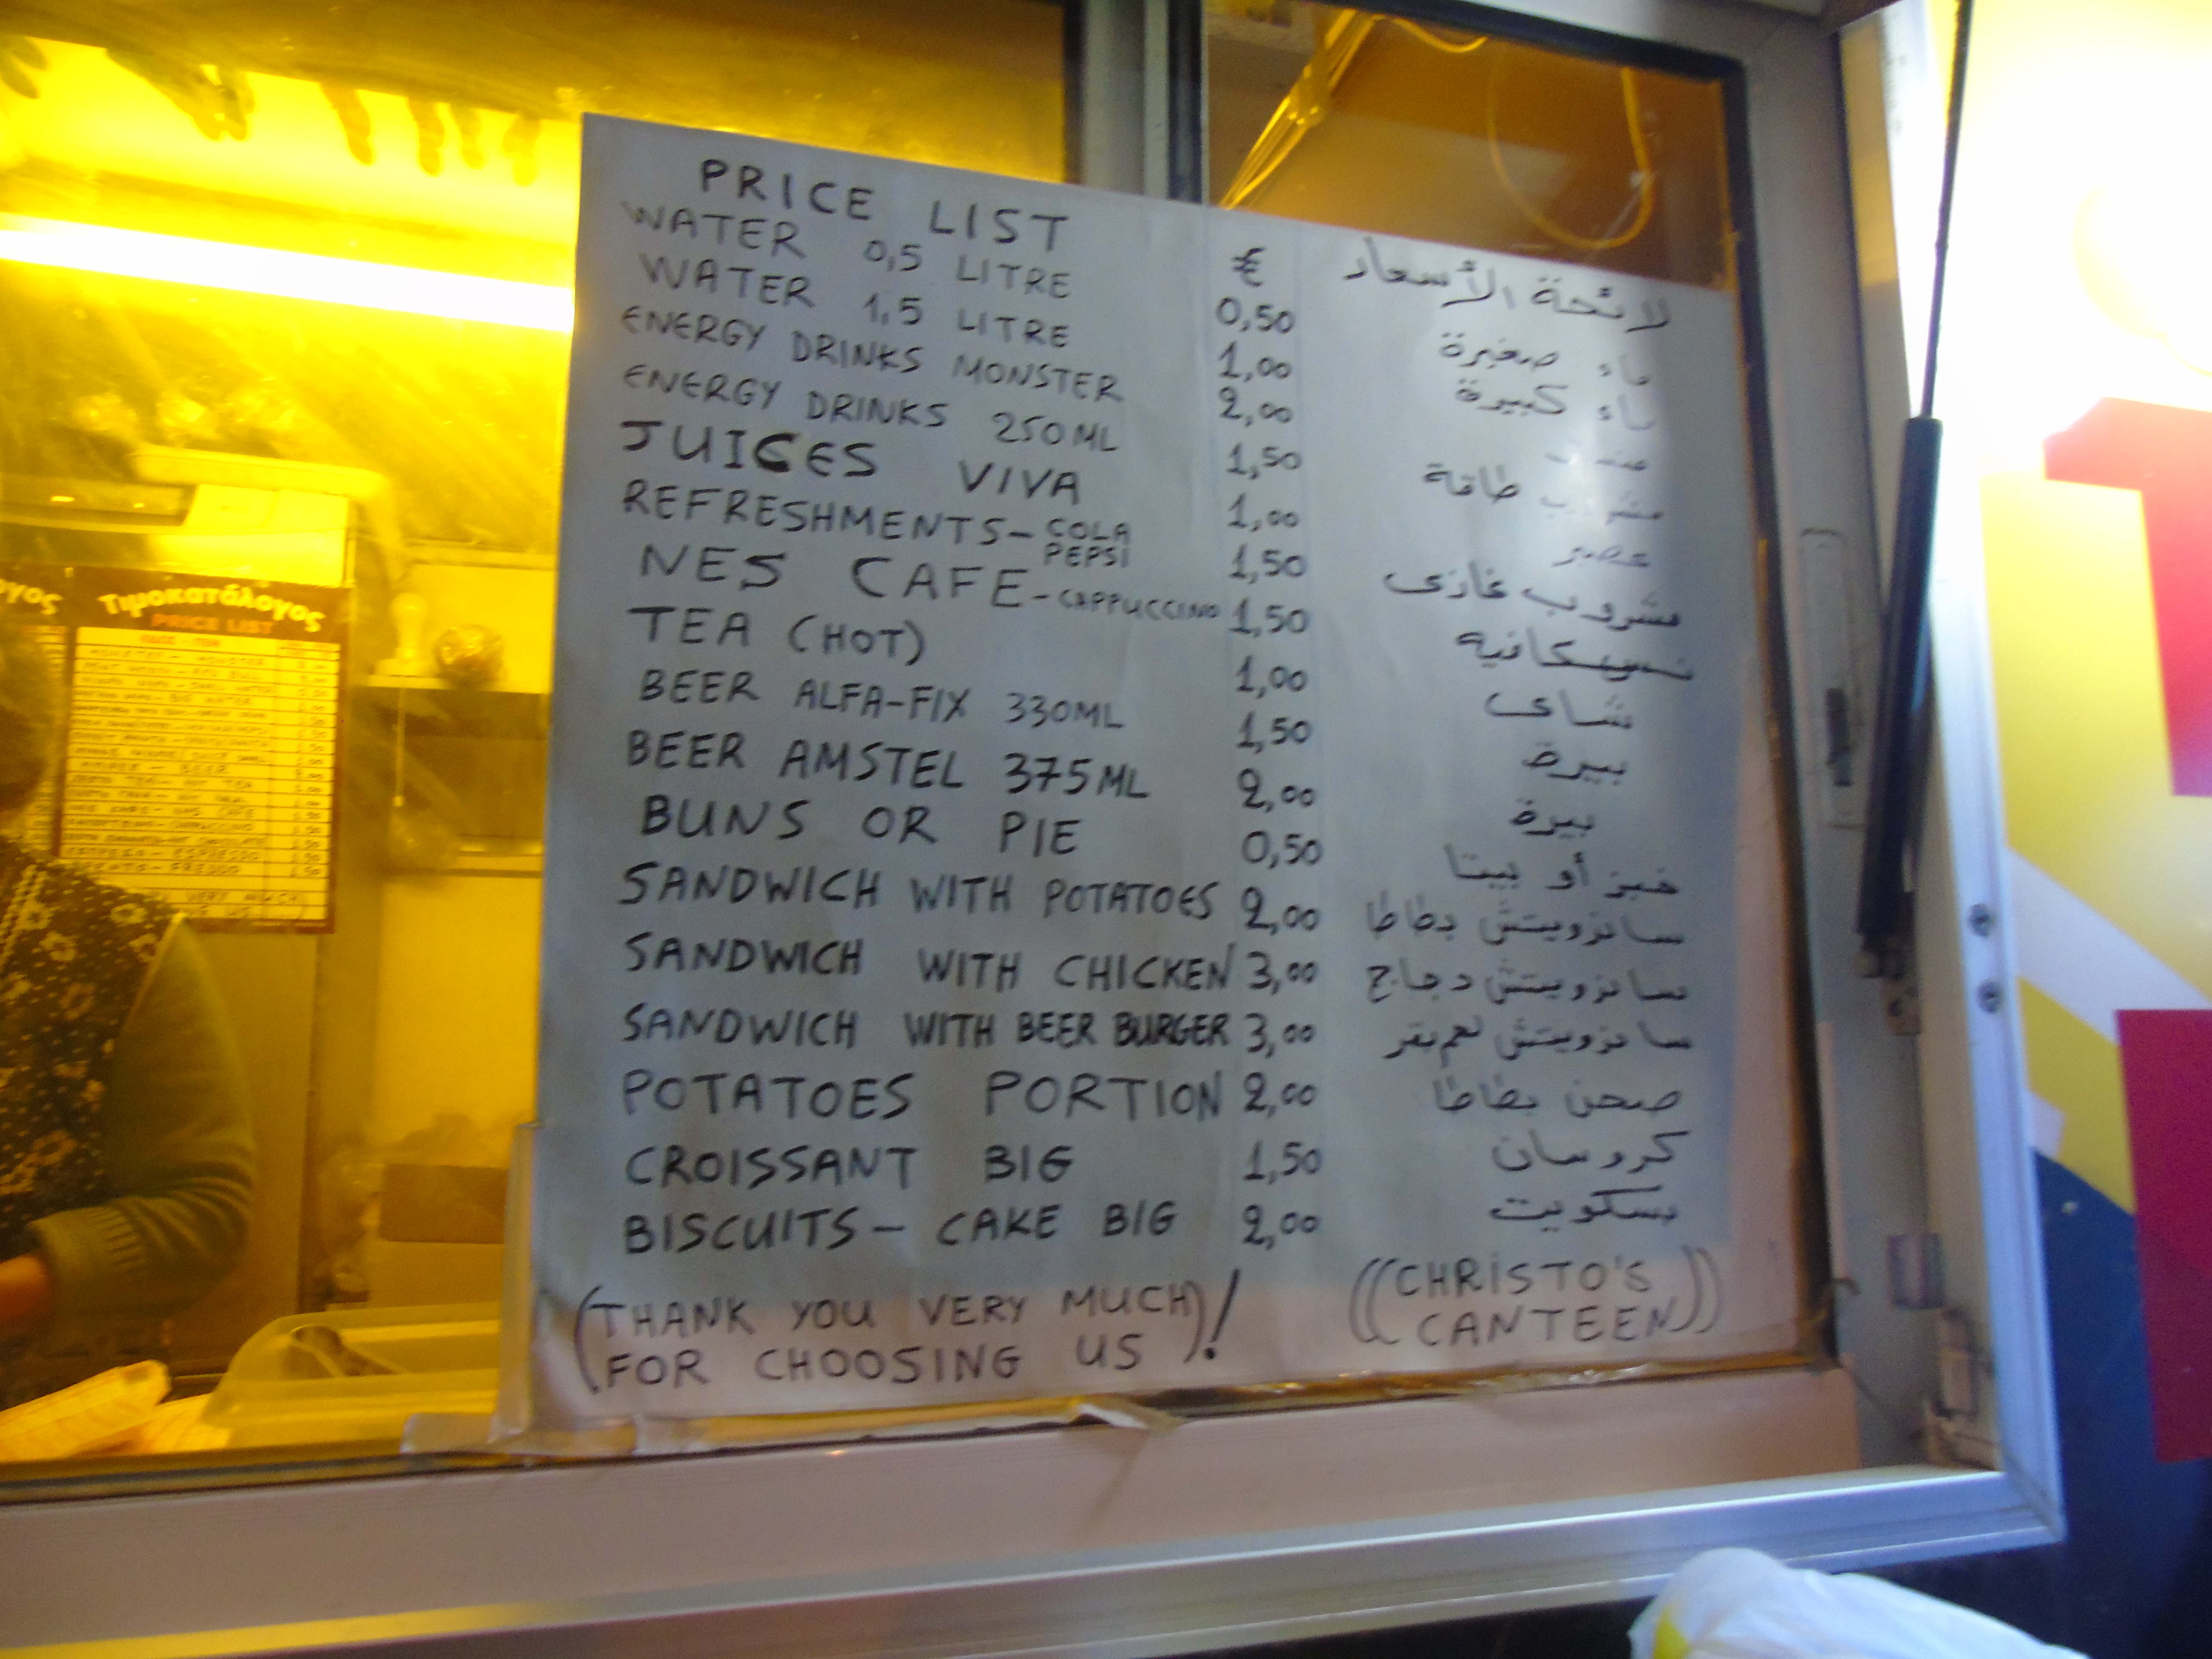 PRICE LIST € لائحة الأسعار
WATER 0,5 LITRE 0,50 ماء صغيرة
WATER 1,5 LITRE 1,00 ماء كبيرة
ENERGY DRINKS MONSTER 2,00
ENERGY DRINKS 250ML 1,50 مشروب طاقة
JUICES VIVA 1,00 عصير
REFRESHMENTS - COLA PEPSI 1,50 مشروب غازى
NES CAFE - CAPPUCCINO 1,50 نسكافيه
TEA (HOT) 1,00 شاى
BEER ALFA-FIX 330ML 1,50 بيرة
BEER AMSTEL 375ML 2,00 بيرة
BUNS OR PIE 0,50 خبز أو بيتا
SANDWICH WITH POTATOES 2,00 ساندويتش بطاطا
SANDWICH WITH CHICKEN 3,00 ساندويتش دجاج
SANDWICH WITH BEER BURGER 3,00 ساندويتش لحم بقر
POTATOES PORTION 2,00 صحن بطاطا
CROISSANT BIG 1,50 كروسان
BISCUITS - CAKE BIG 2,00 بسكويت
(THANK YOU VERY MUCH
FOR CHOOSING US)!
((CHRISTO'S
CANTEEN))
Τιμοκατάλογος
PRICE LIST